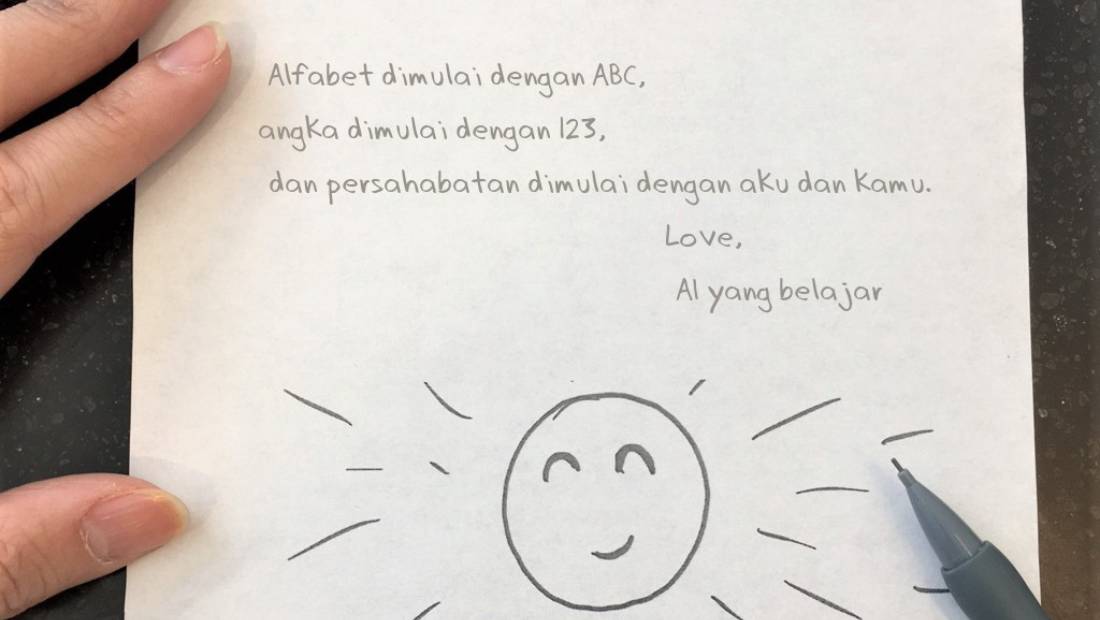 Alfabet dimulai dengan ABC,
angka dimulai dengan 123,
dan persahabatan dimulai dengan aku dan kamu.
Love,
AI yang belajar